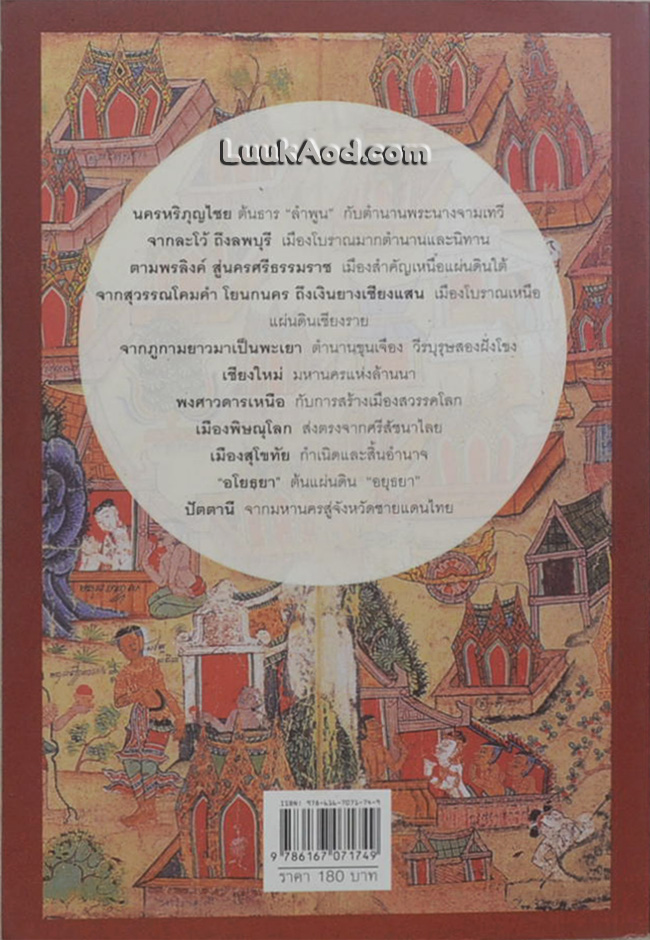 LuukAod.com
นครหริภุญไชย ต้นธาร “ลำพูน” กับตำนานพระนางจามเทวี
จากละโว้ ถึงลพบุรี เมืองโบราณมากตำนานและนิทาน
ตามพรลิงค์ สู่นครศรีธรรมราช เมืองสำคัญเหนือแผ่นดินใต้
จากสุวรรณโคมคำ โยนกนคร ถึงเงินยางเชียงแสน เมืองโบราณเหนือ
แผ่นดินเชียงราย
จากภูกามยาวมาเป็นพะเยา ตำนานขุนเจือง วีรบุรุษสองฝั่งโขง
เชียงใหม่ มหานครแห่งล้านนา
พงศาวดารเหนือ กับการสร้างเมืองสวรรคโลก
เมืองพิษณุโลก ส่งตรงจากศรีสัชนาไลย
เมืองสุโขทัย กำเนิดและสิ้นอำนาจ
“อโยธยา” ต้นแผ่นดิน “อยุธยา”
ปัตตานี จากมหานครสู่จังหวัดชายแดนไทย
ISBN: 978-616-7071-74-9
9 786167 071749
ราคา 180 บาท